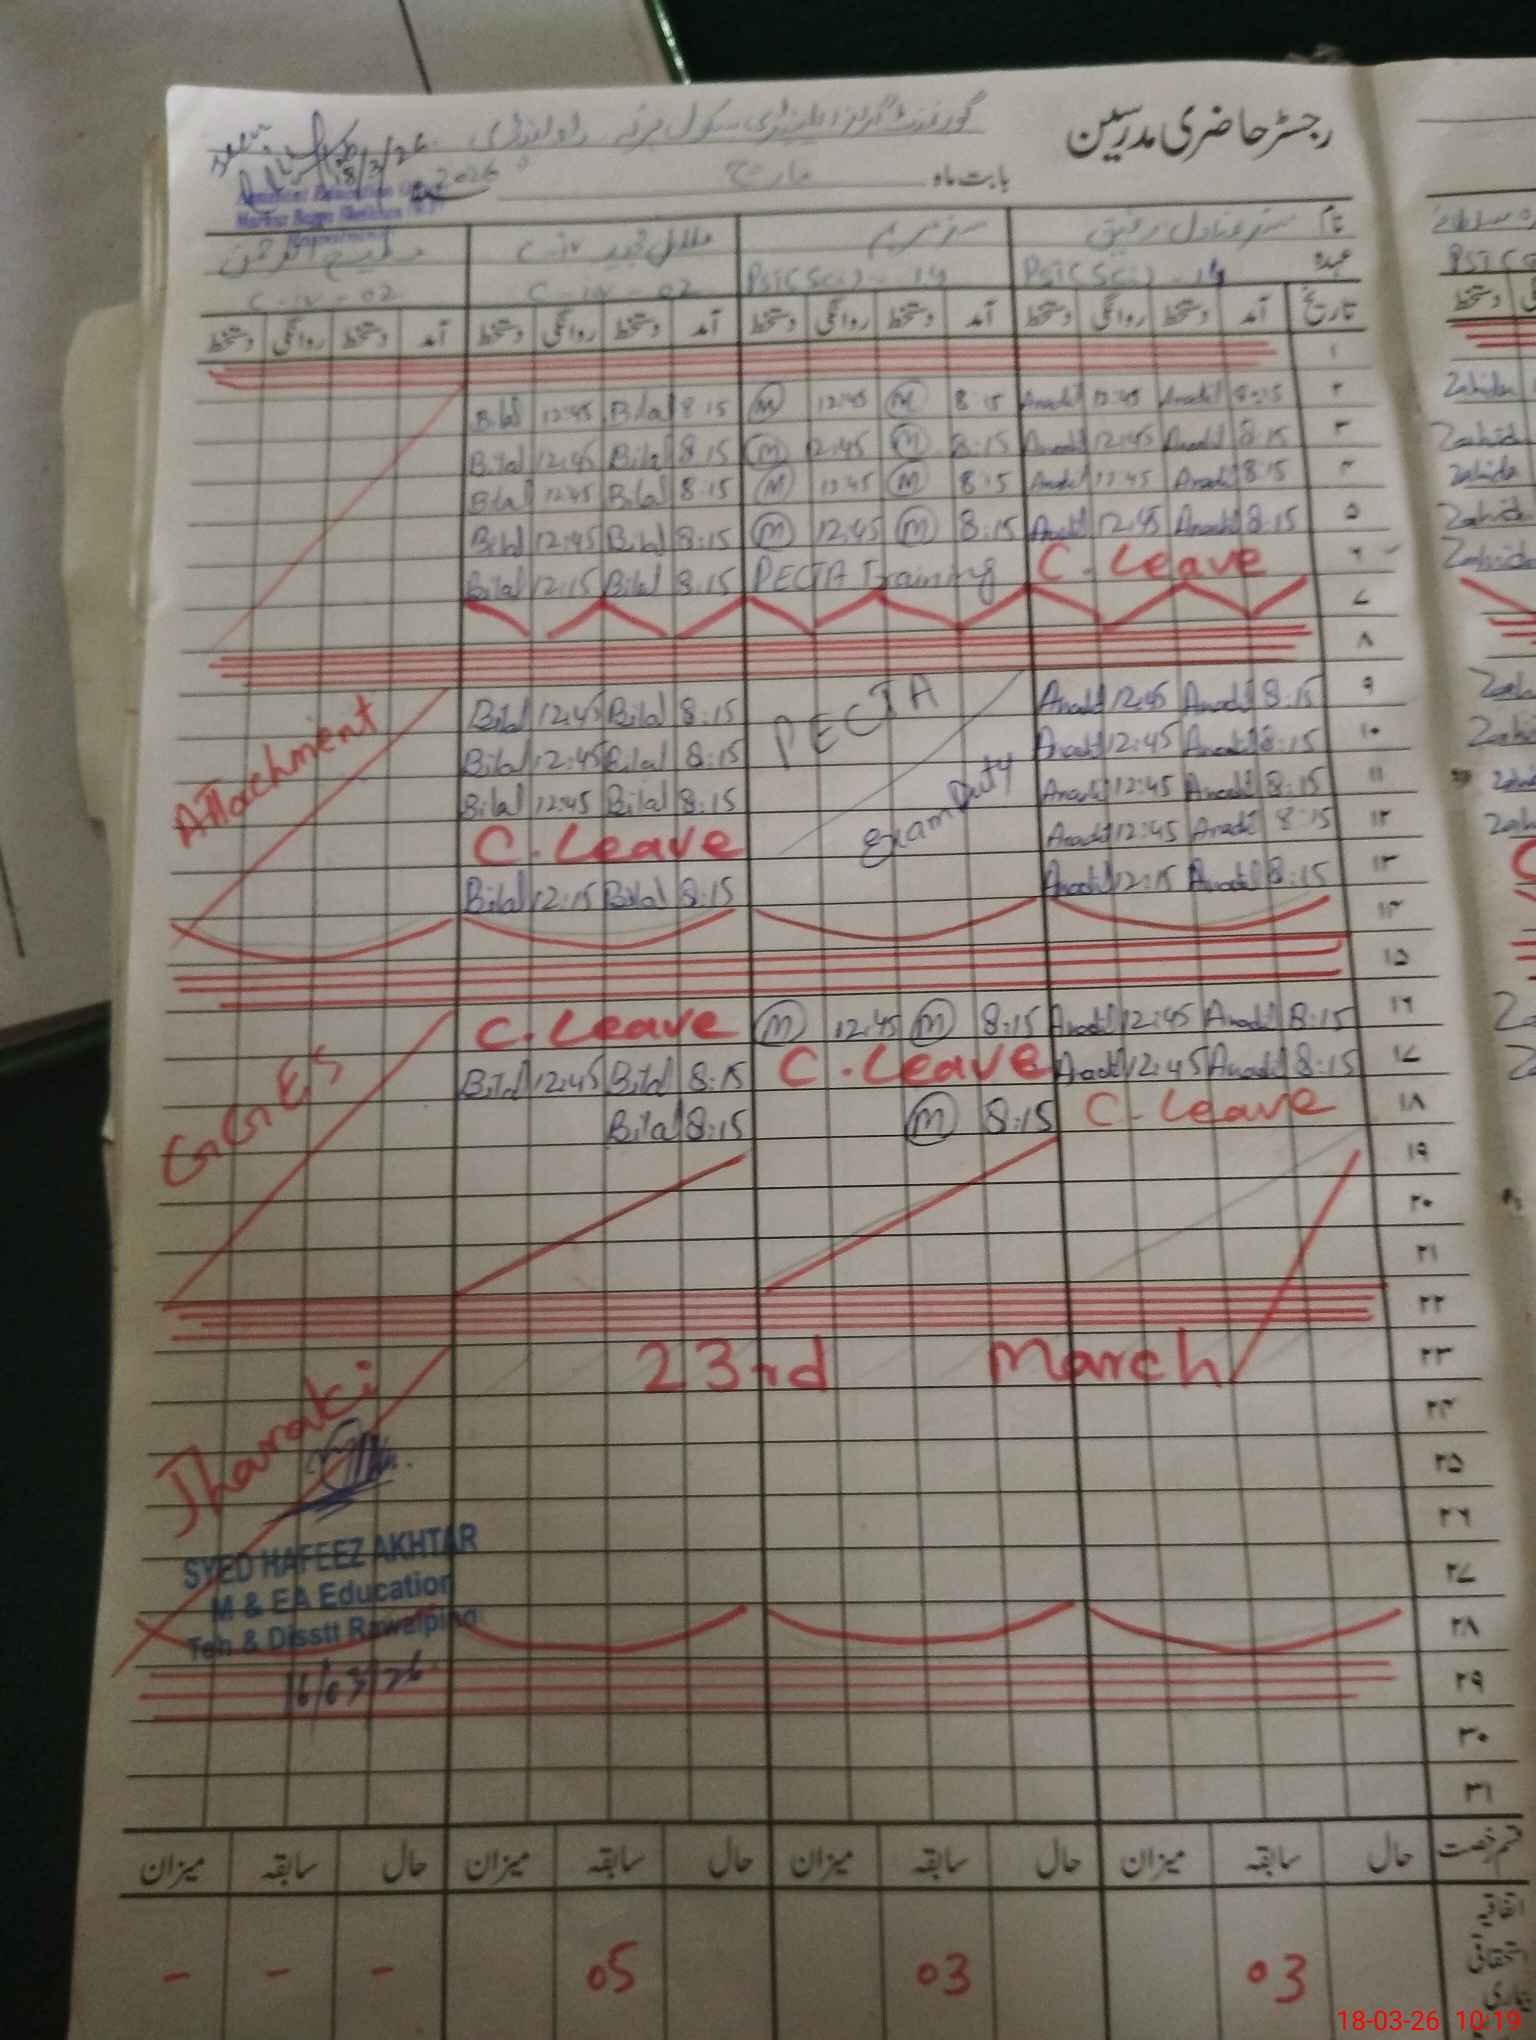 رجسٹر حاضری مدرسین
گورنمنٹ گرلز ایلیمنٹری سکول راولپنڈی
seen
18/3/26
بابت ماہ مارچ 2026
نام
عہدہ PST(Sci) - 14 PST(Sci) - 14 C-iv-02 C-iv-02
تاریخ آمد دستخط روانگی دستخط آمد دستخط روانگی دستخط آمد دستخط روانگی دستخط آمد دستخط روانگی دستخط
۱
Bilal 12:45 Bilal 8:15 M 12:45 M 8:15 Anadil 12:45 Anadil 8:15 ۲
Bilal 12:45 Bilal 8:15 M 12:45 M 8:15 Anadil 12:45 Anadil 8:15 ۳
Bilal 12:45 Bilal 8:15 M 12:45 M 8:15 Anadil 12:45 Anadil 8:15 ۴
Bilal 12:45 Bilal 8:15 M 12:45 M 8:15 Anadil 12:45 Anadil 8:15 ۵
Bilal 12:15 Bilal 8:15 PECTA Training C. Leave ۶
۷
۸
Bilal 12:45 Bilal 8:15 PECTA Anadil 12:45 Anadil 8:15 ۹
Attachment Bilal 12:45 Bilal 8:15 Anadil 12:45 Anadil 8:15 ۱۰
Bilal 12:45 Bilal 8:15 Exam Duty Anadil 12:45 Anadil 8:15 ۱۱
C. Leave Anadil 12:45 Anadil 8:15 ۱۲
Bilal 12:15 Bilal 8:15 Anadil 12:15 Anadil 8:15 ۱۳
۱۴
۱۵
C. Leave M 12:45 M 8:15 Anadil 12:45 Anadil 8:15 ۱۶
GGES Bilal 12:45 Bilal 8:15 C. Leave Anadil 12:45 Anadil 8:15 ۱۷
Bilal 8:15 M 8:15 C. Leave ۱۸
۱۹
۲۰
۲۱
۲۲
23rd March ۲۳
Jharaki
۲۴
۲۵
۲۶
SYED HAFEEZ AKHTAR
۲۷
M & EA Education
Teh & Disstt Rawalpind
۲۸
16/03/26
۲۹
۳۰
۳۱
قسم رخصت حال سابقہ میزان حال سابقہ میزان حال سابقہ میزان حال سابقہ میزان
اتفاقیہ
استحقاقی
بیماری
- - - 05 03 03
Zahida
PST(S
Zahida
Zahida
Zahida
Zahida
Zahida
18-03-26 10:19